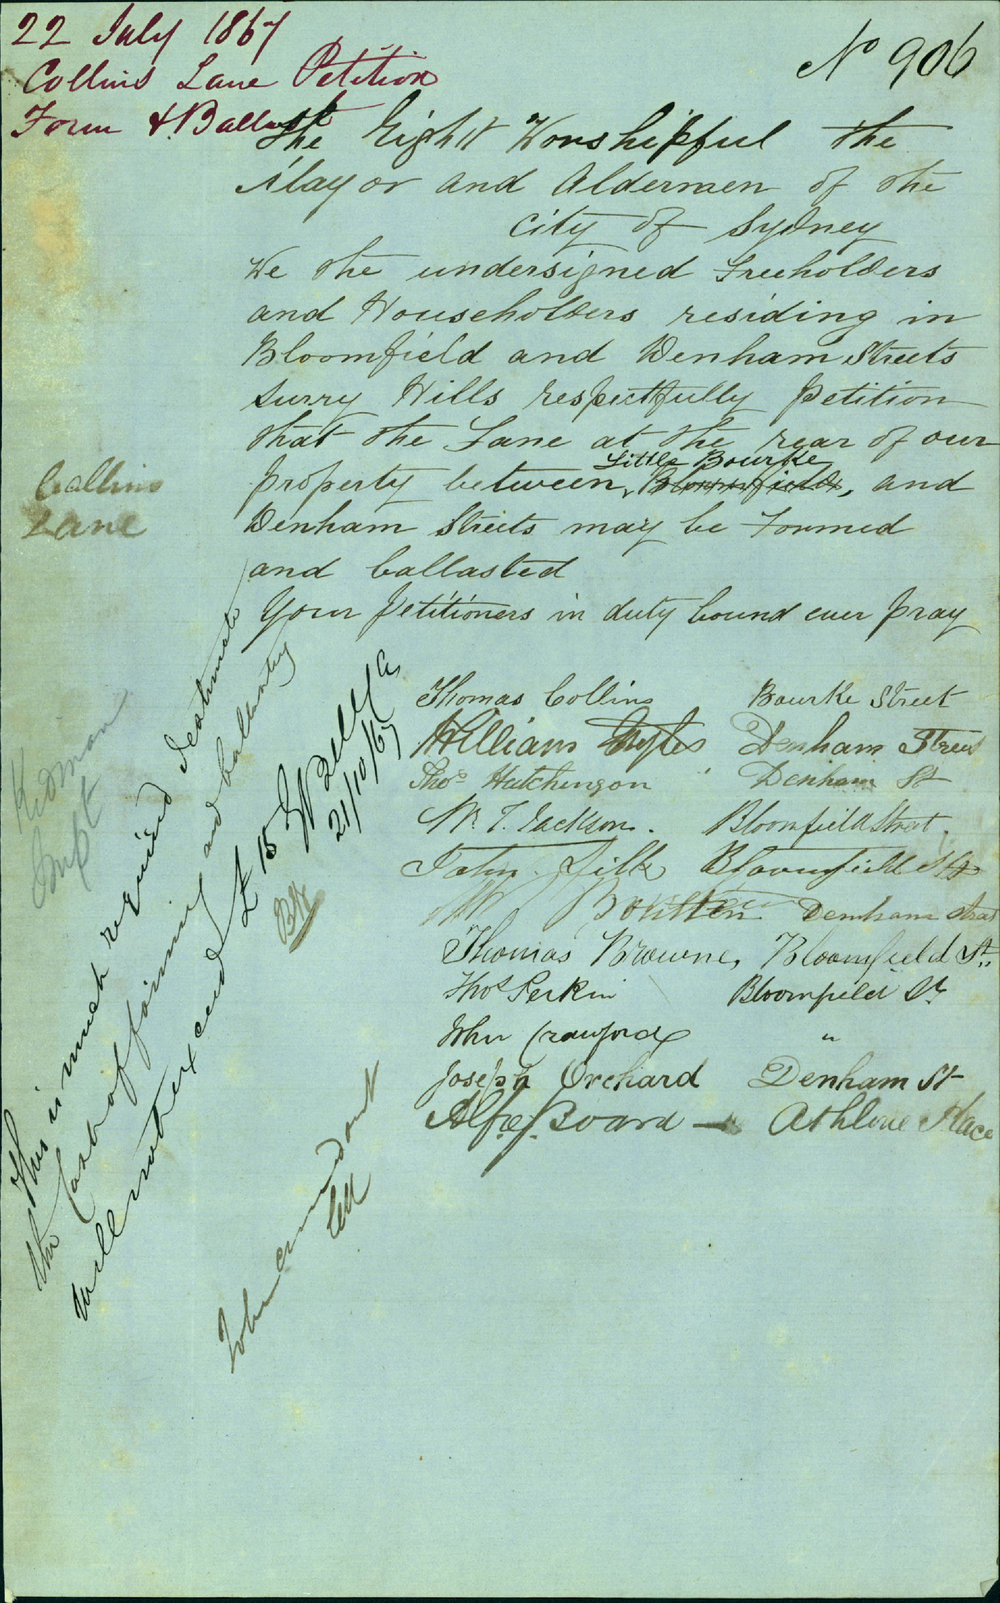 22 July 1867
Collins Lane Petition
Form & Ballast
No 906
The Right Worshipful the
Mayor and Aldermen of the
City of Sydney
We the undersigned Freeholders
and Householders residing in
Bloomfield and Denham Streets
Surry Hills respectfully Petition
that the Lane at the rear of our
Little Bourke
property between Bloomfield, and
Denham Streets may be Formed
and ballasted
Your Petitioners in duty bound ever pray
Collins
Lane
Thomas Collins Bourke Street
William Denham Street
Thos Hutchinson Denham St
W. T. Jackson. Bloomfield Street.
John Bloomfield St
Denham Street
Thomas Browne, Bloomfield St.
Thos Perkin Bloomfield St
John Crawford "
Joseph Orchard Denham St
Alf. J. Board — Athlone Place
This is much required I estimate
the cost of forming and ballasting
will not exceed £15
21/10/67
To be carried out